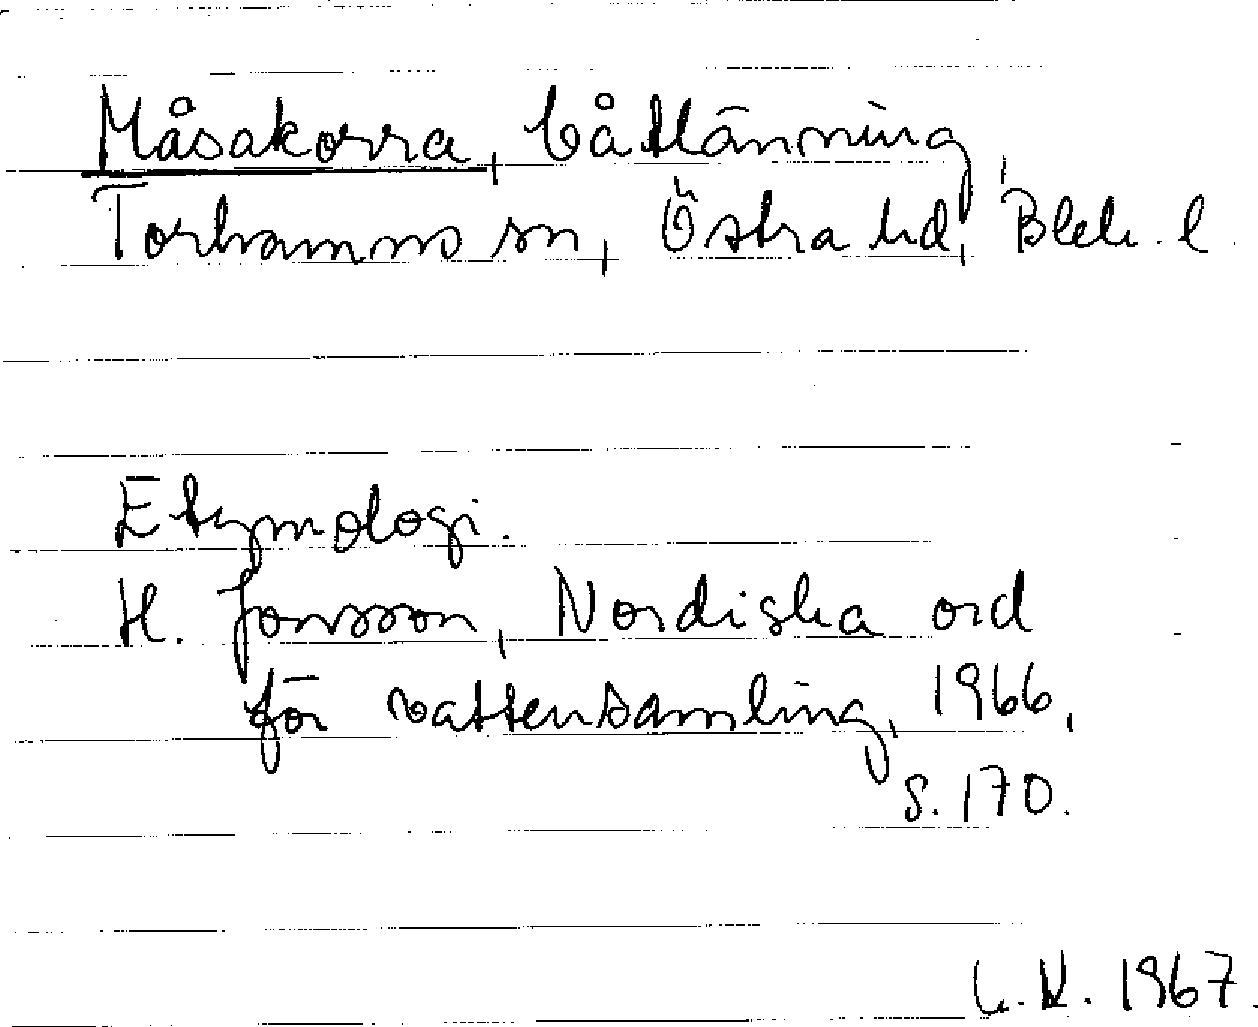 Måsakorra, båtlänning,
Torhamns sn, Östra hd, Blek. l.
Etymologi.
H. Jonsson, Nordiska ord
för vattensamling, 1966,
s. 170.
1967.